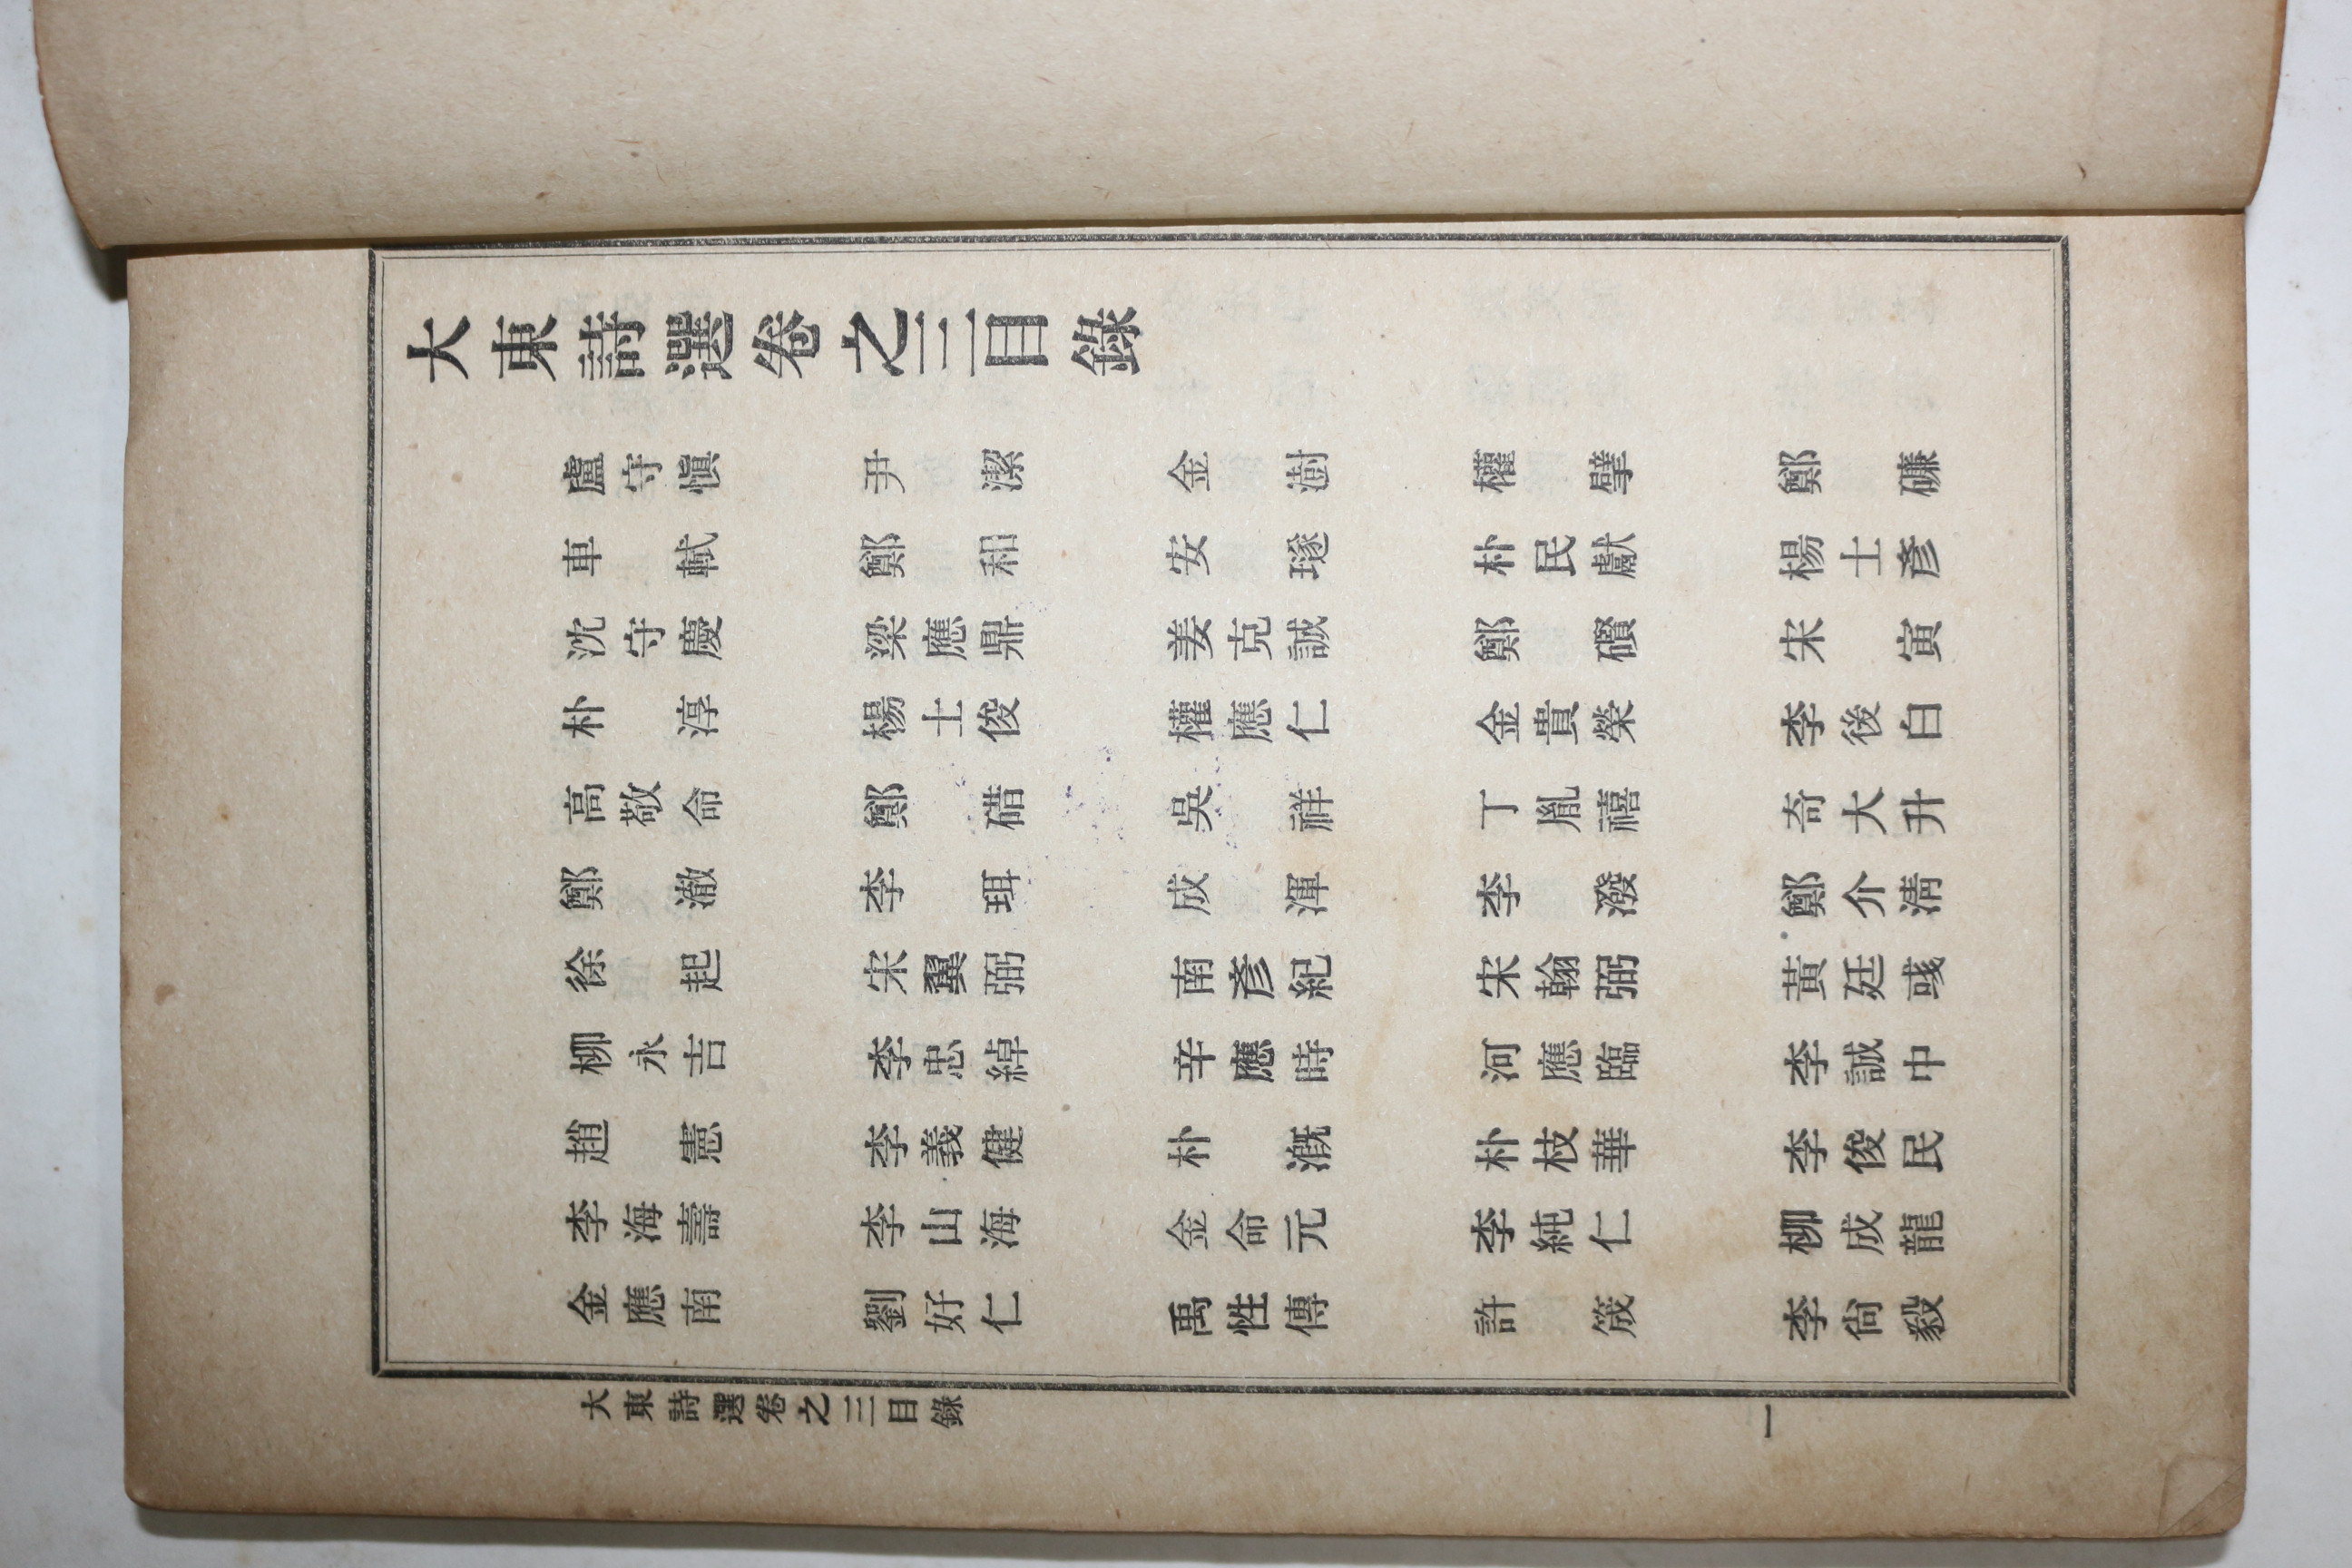 大東詩選卷之三目錄
盧守愼 尹潔 金澍 權擘 鄭礥
車軾 鄭和 安璲 朴民獻 楊士彥
沈守慶 梁應鼎 姜克誠 鄭礦 宋寅
朴淳 楊士俊 權應仁 金貴榮 李後白
高敬命 鄭碏 吳祥 丁胤禧 奇大升
鄭澈 李珥 成渾 李潑 鄭介淸
徐起 宋翼弼 南彥紀 宋翰弼 黃廷彧
柳永吉 李忠綽 辛應時 河應臨 李誠中
趙憲 李義健 朴漑 朴枝華 李俊民
李海壽 李山海 金命元 李純仁 柳成龍
金應南 劉好仁 禹性傳 許筬 李尙毅
大東詩選卷之三目錄
一